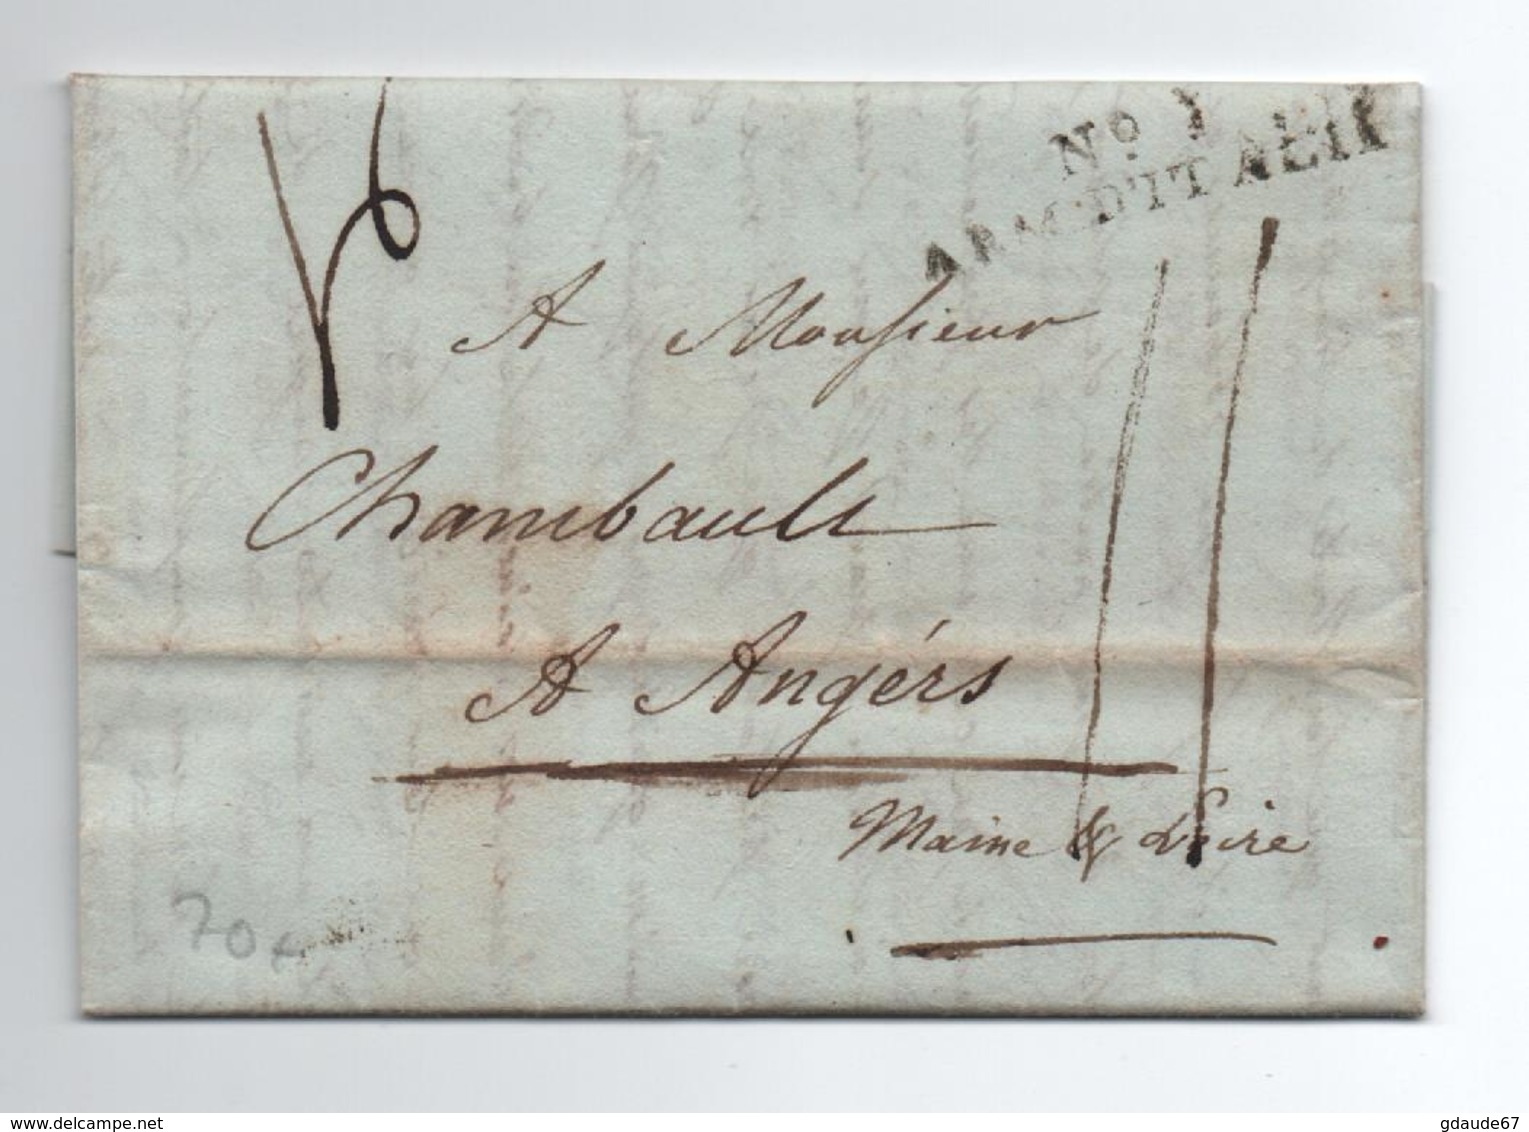 No 1
ARM. D'ITALIE
A Monsieur
Chambault
A Angérs
Maine & Loire
70
delcampe.net
gdaude67